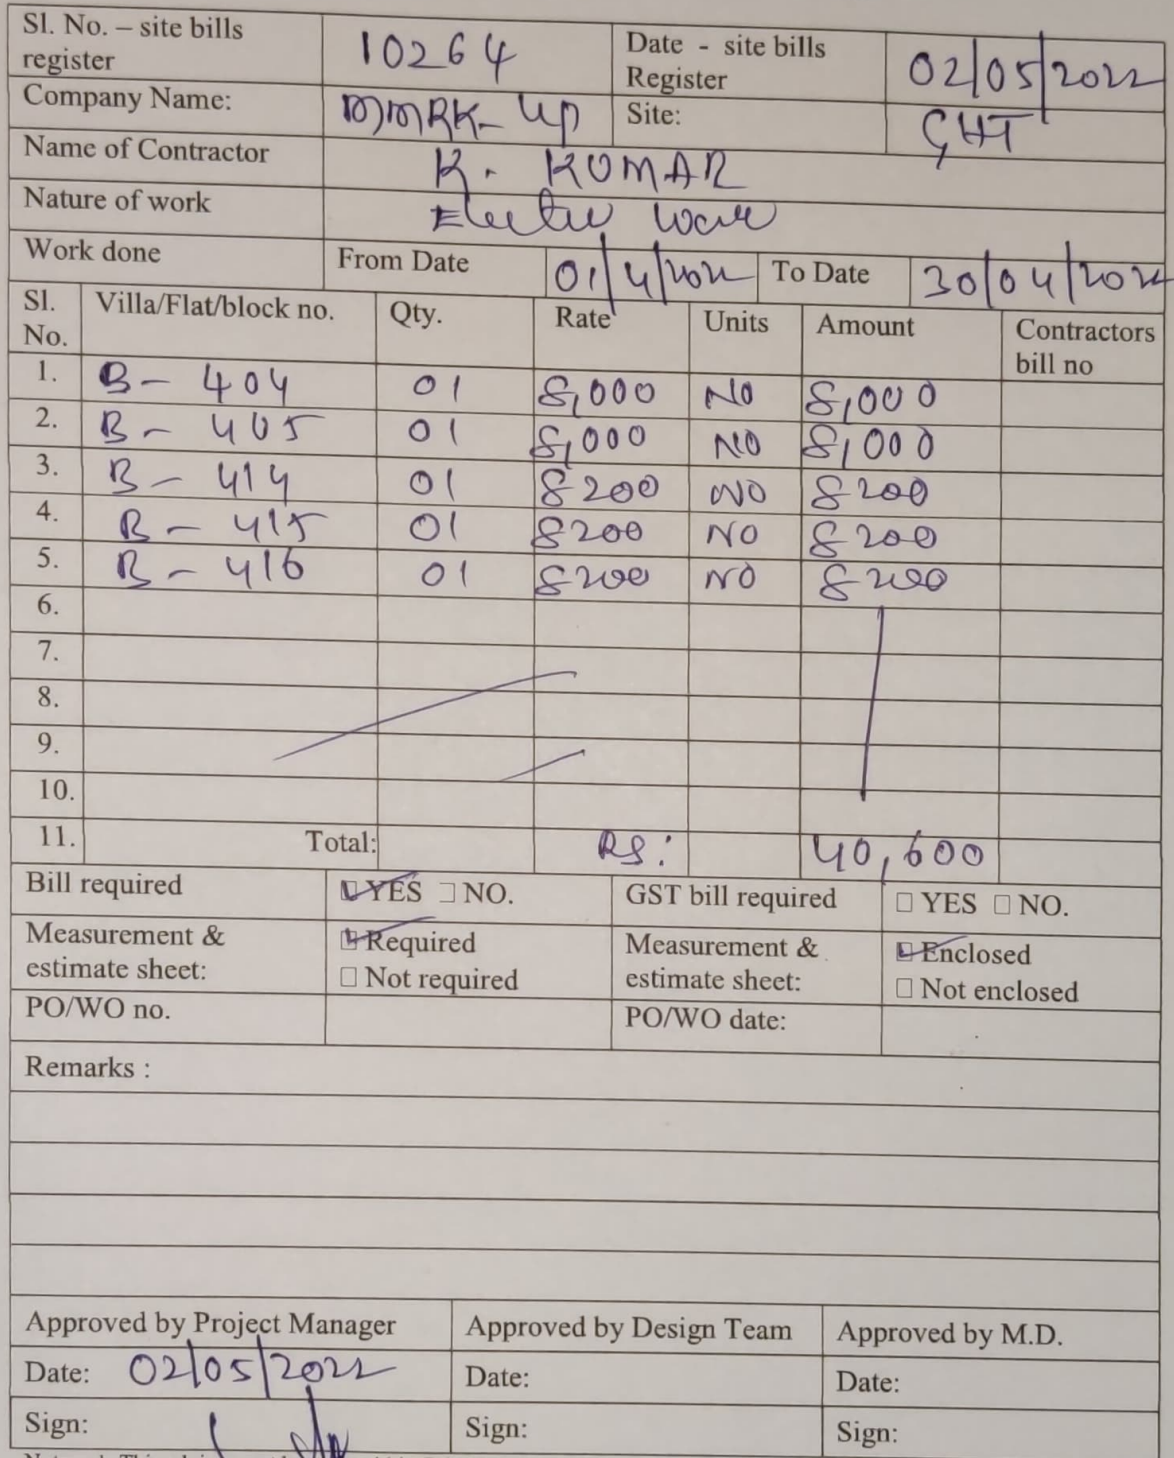 Sl. No. – site bills register 10264 Date - site bills Register 02/05/2022
Company Name: MMRK-UP Site: GHT
Name of Contractor K. KUMAR
Nature of work Electric work
Work done From Date 01/4/2022 To Date 30/04/2022
Sl. No. Villa/Flat/block no. Qty. Rate Units Amount Contractors bill no
1. B - 404 01 8,000 NO 8,000
2. B - 405 01 8,000 NO 8,000
3. B - 414 01 8200 NO 8200
4. B - 415 01 8200 NO 8200
5. B - 416 01 8200 NO 8200
6.
7.
8.
9.
10.
11. Total: RS: 40,600
Bill required ☑ YES ☐ NO. GST bill required ☐ YES ☐ NO.
Measurement & estimate sheet: ☑ Required ☐ Not required Measurement & estimate sheet: ☑ Enclosed ☐ Not enclosed
PO/WO no. PO/WO date:
Remarks :
Approved by Project Manager Approved by Design Team Approved by M.D.
Date: 02/05/2022 Date: Date:
Sign: Sign: Sign: